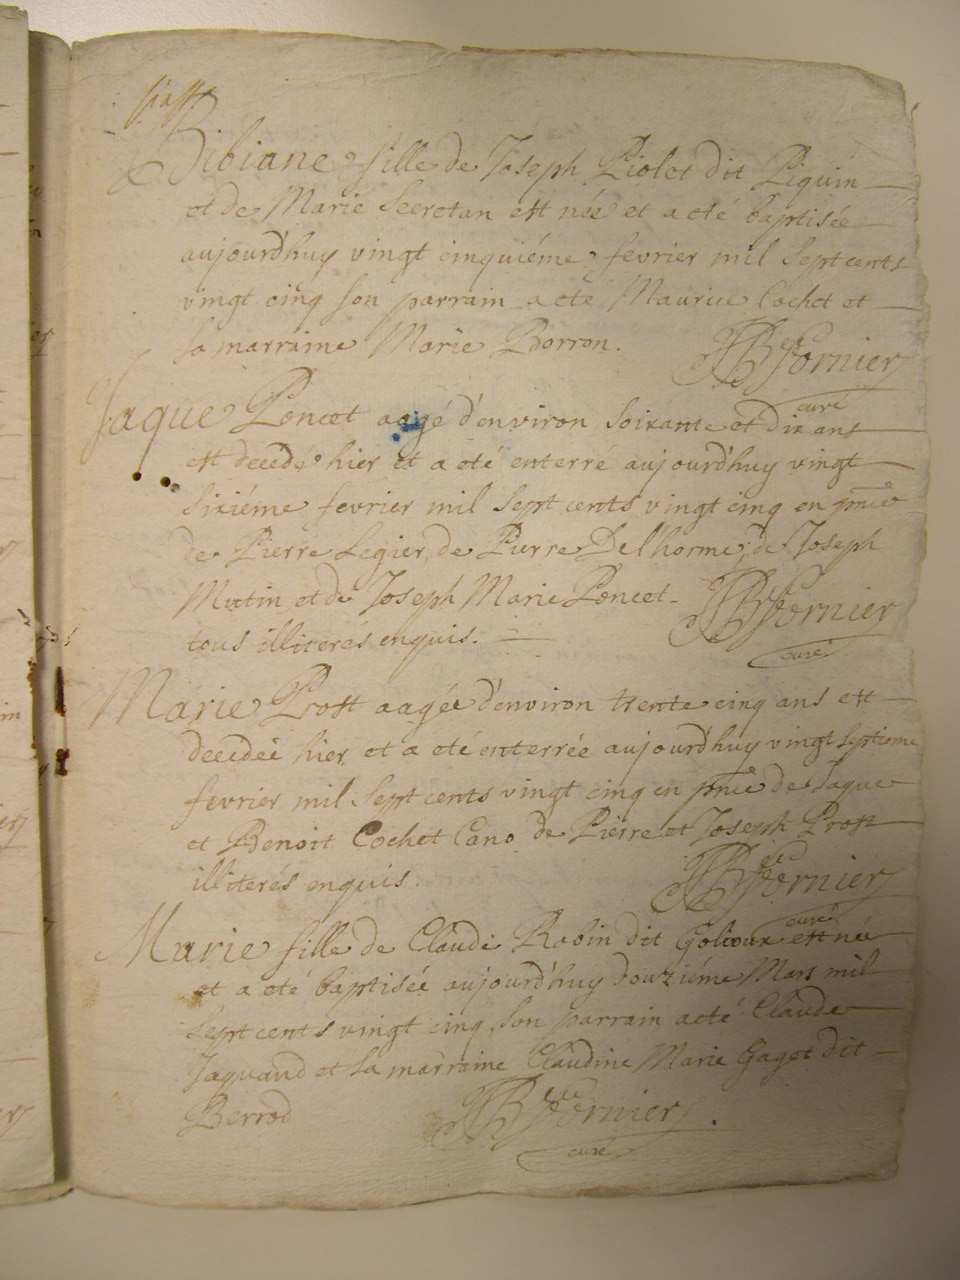 Bibiane fille de Joseph Piolet dit Piquin
et de Marie Secretan est née et a eté baptisée
aujourd'huy vingt cinquiéme fevrier mil Sept cents
vingt cinq son parrain a eté Maurice Cochet et
sa marraine Marie Borron. JB Fornier
curé
Jaque Poncet aagé d'environ Soixante et dix ans
est decedé hier et a eté enterré aujourd'huy vingt
Sixiéme fevrier mil Sept cents vingt cinq en pnce
de Pierre Legier, de Pierre Delhorme, de Joseph
Mutin et de Joseph Marie Poncet JB Fornier
tous illiterés enquis.
curé
Marie Prost aagée d'environ trente cinq ans est
decedée hier et a eté enterrée aujourd'huy vingt septieme
fevrier mil Sept cents vingt cinq en pnce de Jaque
et Benoit Cochet Cano de Pierre et Joseph Prost
illiterés enquis. JB Fornier
curé
Marie fille de Claude Robin dit Golioux est née
et a eté baptisée aujourd'huy douziéme Mars mil
Sept cents vingt cinq, son parrain a eté Claude
Jaquand et sa marraine Claudine Marie Gaget dit
Berrod JB Fornier
curé